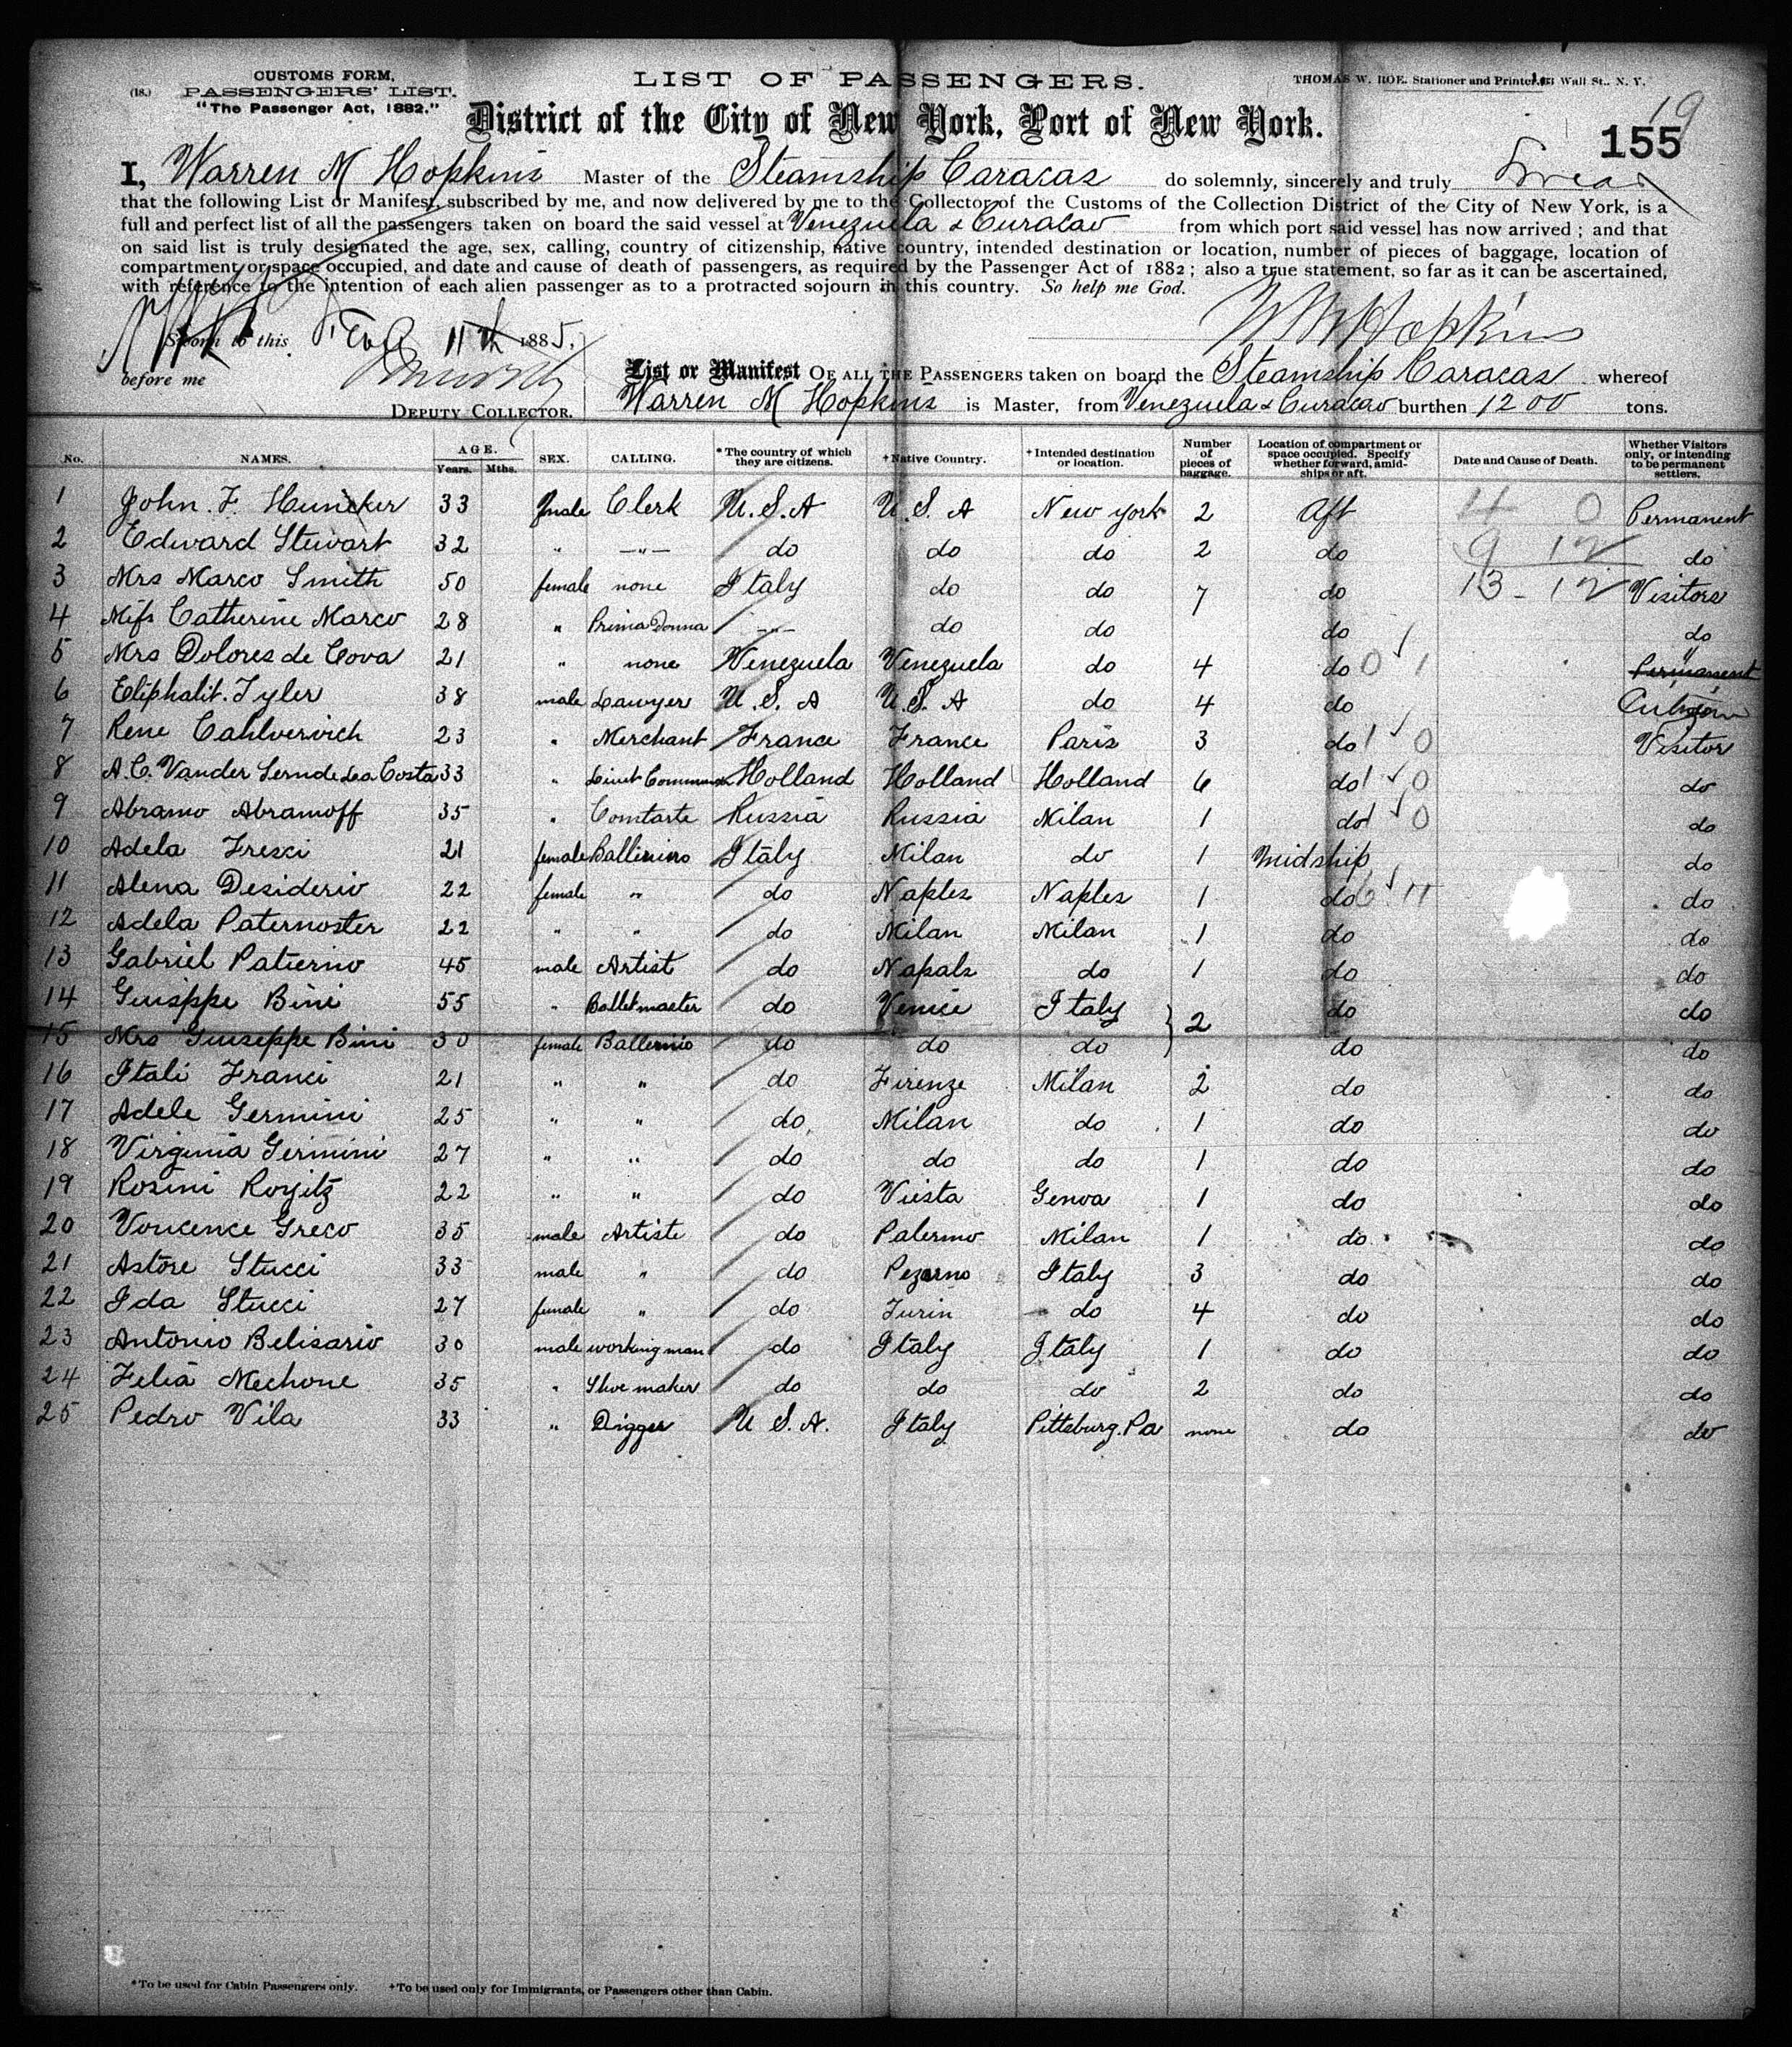 CUSTOMS FORM,
(18.) PASSENGERS' LIST.
"The Passenger Act, 1882."
LIST OF PASSENGERS.
THOMAS W. ROE, Stationer and Printer, Wall St., N. Y.
19
District of the City of New York, Port of New York.
155
I, Warren M Hopkins Master of the Steamship Caracas do solemnly, sincerely and truly Swear
that the following List or Manifest, subscribed by me, and now delivered by me to the Collector of the Customs of the Collection District of the City of New York, is a
full and perfect list of all the passengers taken on board the said vessel at Venezuela & Curacao from which port said vessel has now arrived; and that
on said list is truly designated the age, sex, calling, country of citizenship, native country, intended destination or location, number of pieces of baggage, location of
compartment or space occupied, and date and cause of death of passengers, as required by the Passenger Act of 1882; also a true statement, so far as it can be ascertained,
with reference to the intention of each alien passenger as to a protracted sojourn in this country. So help me God.
Sworn to this Feb 11th 1885,
W M Hopkins
before me
DEPUTY COLLECTOR.
List or Manifest OF ALL THE PASSENGERS taken on board the Steamship Caracas whereof
Warren M Hopkins is Master, from Venezuela & Curacao burthen 1200 tons.
No. NAMES. AGE. Years. Mths. SEX. CALLING. *The country of which they are citizens. †Native Country. †Intended destination or location. Number of pieces of baggage. Location of compartment or space occupied. Specify whether forward, amidships or aft. Date and Cause of Death. Whether Visitors only, or intending to be permanent settlers.
1 John F Huncker 33 male Clerk U.S.A U.S.A New york 2 Aft 4 0 Permanent
2 Edward Stewart 32 " —"— do do do 2 do 9 12 do
3 Mrs Marco Smith 50 female none Italy do do 7 do 13 - 12 Visitors
4 Miss Catherine Marco 28 " Prima Donna -"- do do do do
5 Mrs Dolores de Cova 21 " none Venezuela Venezuela do 4 do 0 1 " Permanent
6 Eliphalit. Tyler 38 male Lawyer U.S.A U.S.A do 4 do
7 Rene Cahlvervich 23 " Merchant France France Paris 3 do 1 0 Visitor
8 A.C. Vander Lernde Lea Costa 33 " Holland Holland Holland 6 do 1 0 do
9 Abramo Abramoff 35 " Russia Russia Milan 1 do 1 0 do
10 Adela Fresci 21 female Ballerino Italy Milan do 1 Midship do
11 Alena Desiderio 22 female " do Naples Naples 1 do 11 do
12 Adela Paternoster 22 " " do Milan Milan 1 do do
13 Gabriel Patierno 45 male Artist do Napals do 1 do do
14 Giusppe Bini 55 " Ballet master do Venice Italy } 2 do do
15 Mrs Giuseppe Bini 30 female Ballernio do do do do do
16 Itali Franci 21 " " do Firenze Milan 2 do do
17 Adele Germini 25 " " do Milan do 1 do do
18 Virginia Germini 27 " " do do do 1 do do
19 Rosini Royitz 22 " " do Viesta Genoa 1 do do
20 Voncence Greco 35 male Artiste do Palermo Milan 1 do do
21 Astore Stucci 33 male " do Pezerno Italy 3 do do
22 Ida Stucci 27 female " do Turin do 4 do do
23 Antonio Belisario 30 male working man do Italy Italy 1 do do
24 Felia Mechone 35 " Shoe maker do do do 2 do do
25 Pedro Vila 33 " Digger U.S.A. Italy Pittsburg. Pa none do do
*To be used for Cabin Passengers only. †To be used only for Immigrants, or Passengers other than Cabin.